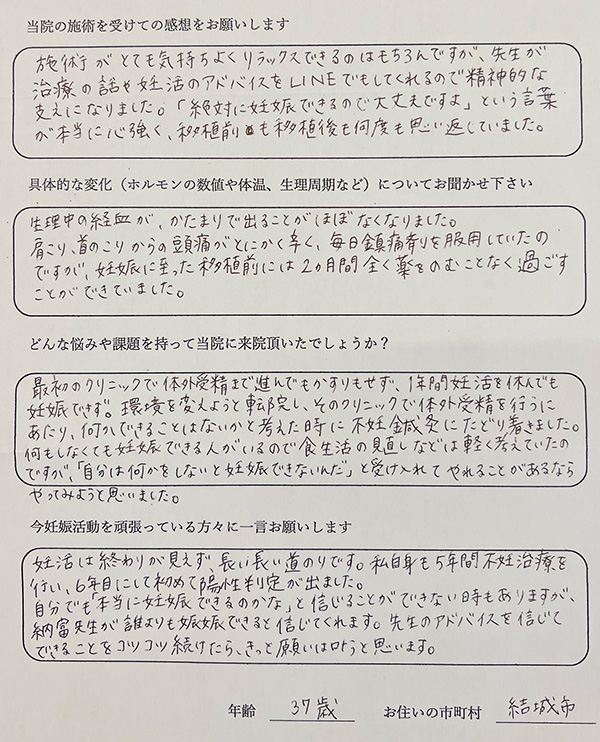 当院の施術を受けての感想をお願いします
施術がとても気持ちよくリラックスできるのはもちろんですが、先生が
治療の話や妊活のアドバイスをLINEでもしてくれるので精神的な
支えになりました。「絶対に妊娠できるので大丈夫ですよ」という言葉
が本当に心強く、移植前も移植後も何度も思い返していました。
具体的な変化（ホルモンの数値や体温、生理周期など）についてお聞かせ下さい
生理中の経血が、かたまりで出ることがほぼなくなりました。
肩こり、首のこりからの頭痛がとにかく辛く、毎日鎮痛剤を服用していたの
ですが、妊娠に至った移植前には2カ月間全く薬をのむことなく過ごす
ことができていました。
どんな悩みや課題を持って当院に来院頂いたでしょうか？
最初のクリニックで体外受精まで進んでもかすりもせず、1年間妊活を休んでも
妊娠できず。環境を変えようと転院し、そのクリニックで体外受精を行うに
あたり、何かできることはないかと考えた時に不妊鍼灸にたどり着きました。
何もしなくても妊娠できる人がいるので食生活の見直しなどは軽く考えていたの
ですが、「自分は何かをしないと妊娠できないんだ」と受け入れてやれることがあるなら
やってみようと思いました。
今妊娠活動を頑張っている方々に一言お願いします
妊活は終わりが見えず、長い長い道のりです。私自身も5年間不妊治療を
行い、6年目にして初めて陽性判定が出ました。
自分でも「本当に妊娠できるのかな」と信じることができない時もありますが、
納富先生が誰よりも妊娠できると信じてくれます。先生のアドバイスを信じて
できることをコツコツ続けたら、きっと願いは叶うと思います。
年齢 37歳 お住いの市町村 結城市